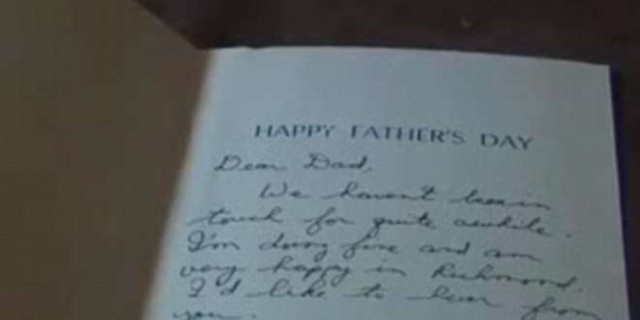 HAPPY FATHER'S DAY
Dear Dad,
We haven't been in
touch for quite awhile.
I'm doing fine and am
very happy in Richmond.
I'd like to hear from
you.